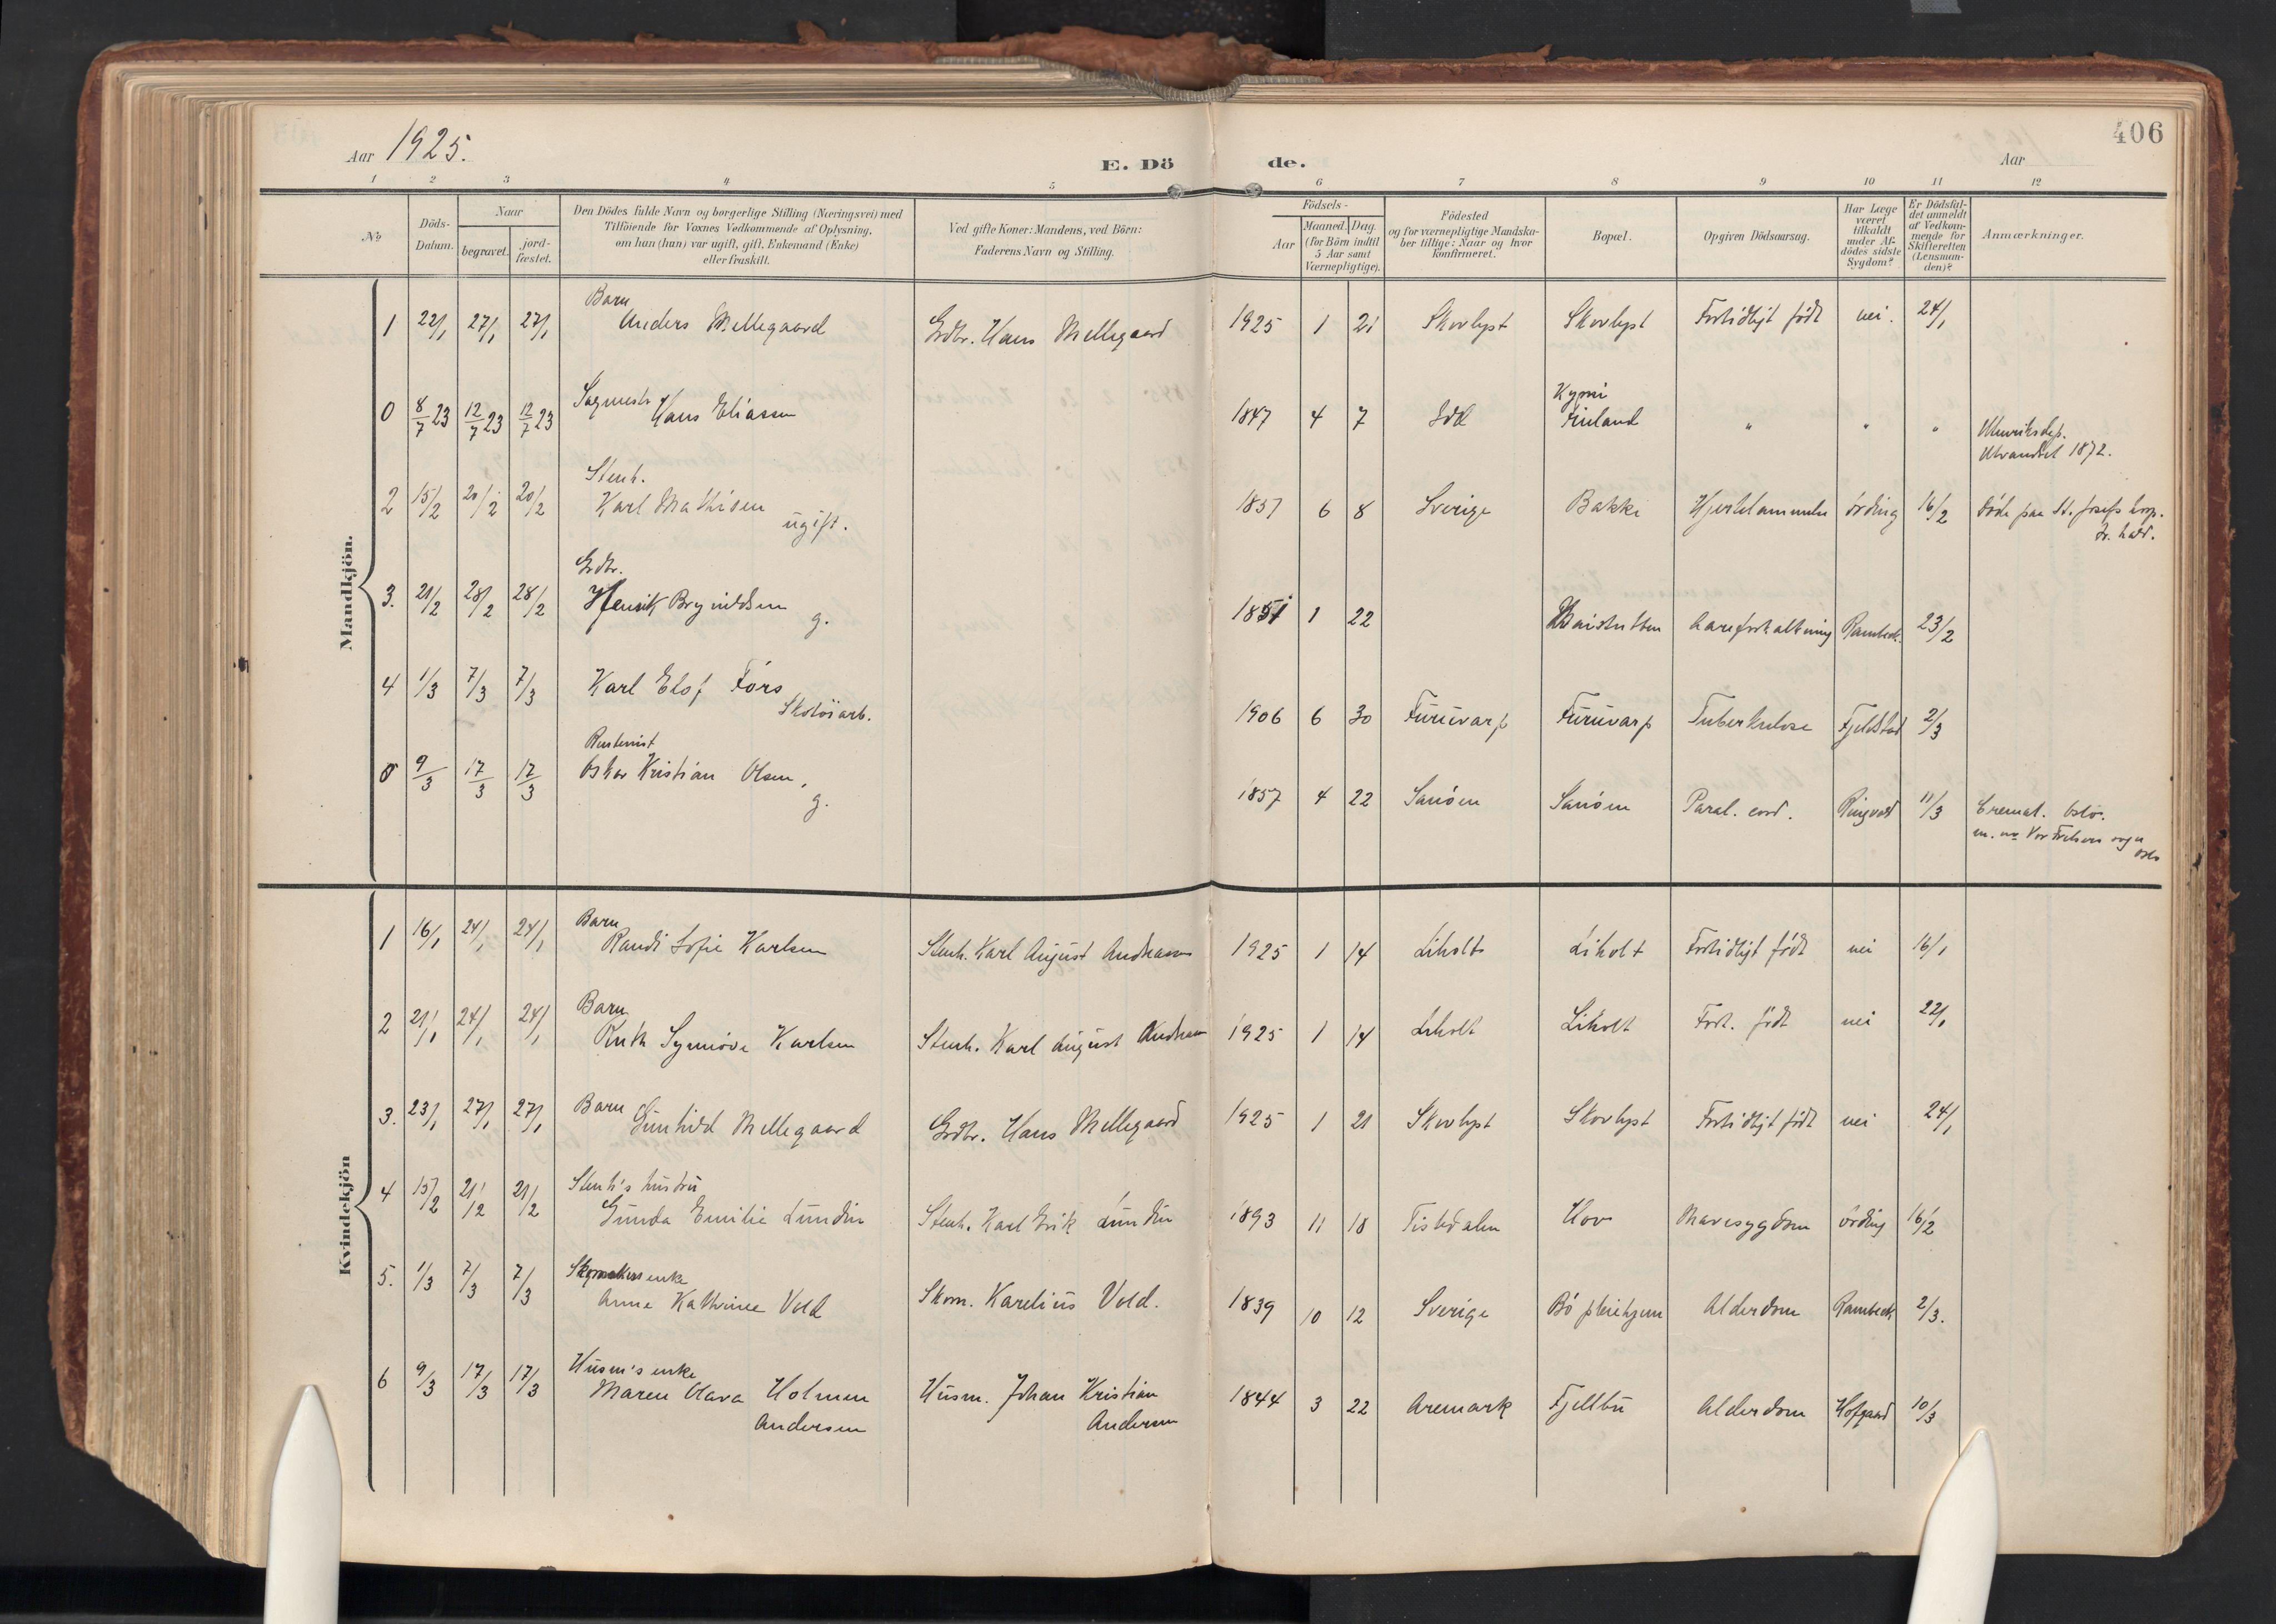 406
Aar 1925.
E. Dö de.
Aar
1 2 3 4 5 6 7 8 9 10 11 12
No
Döds-Datum.
Naar
begravet.
jord-fæstet.
Den Dödes fulde Navn og borgerlige Stilling (Næringsvei) med
Tilföiende for Voxnes Vedkommende af Oplysning,
om han (hun) var ugift, gift, Enkemand (Enke)
eller fraskilt.
Ved gifte Koner: Mandens, ved Börn:
Faderens Navn og Stilling.
Födsels-
Aar
Maaned. Dag.
(for Börn indtil
5 Aar samt
Værnepligtige).
Födested
og for værnepligtige Mandska-
ber tillige: Naar og hvor
konfirmeret.
Bopæl.
Opgiven Dödsaarsag.
Har Læge
været
tilkaldt
under Af-
dödes sidste
Sygdom?
Er Dödsfal-
det anmeldt
af Vedkom-
mende for
Skifteretten
(Lensman-
den)?
Anmærkninger.
Mandkjön.
Barn
1 22/1 27/1 27/1 Anders Mellegaard Grdbr. Hans Mellegaard 1925 1 21 Skovlyst Skovlyst Fortidligt födt nei. 24/1
Kymi
0 8/7 23 12/7 23 12/7 23 Sagmestr Hans Eliassen 1847 4 7 Idd Finland " " " Utenriksdep.
Utvandret 1872.
Stenh.
2 15/2 20/2 20/2 Karl Mathisen ugift. 1857 6 8 Sverige Bakke Hjertelammelse Örding 16/2 Döde paa St. Josefs hosp.
Fr. hald.
Grdbr.
3. 21/2 28/2 28/2 Henrik Brynildsen g. 1851 1 22 Aareforkalkning Rambeck 23/2
4 1/3 7/3 7/3 Karl Elof Fors
Skotöiarb. 1906 6 30 Furuvarp Furuvarp Tuberkulose Fjeldstad 2/3
0 9/3 17/3 17/3 Oskar Kristian Olsen, g. 1857 4 22 Sanöen Sanöen Paral. cord. Ringvold 11/3 Cremat. Oslo.
Vor Frelsers sogn
Oslo
Kvindekjön
Barn
1 16/1 24/1 24/1 Randi Sofie Karlsen Stenh. Karl August Andreassen 1925 1 14 Liholt Liholt Fortidligt födt nei 16/1
Barn
2 21/1 24/1 24/1 Ruth Synnöve Karlsen Stenh. Karl August Andreassen 1925 1 14 Liholt Liholt Fort. födt nei 22/1
Barn
3. 23/1 27/1 27/1 Gunhild Mellegaard Grdbr. Hans Mellegaard 1925 1 21 Skovlyst Skovlyst Fortidligt födt nei 24/1
Stenh's hustru
4 15/2 21/2 21/2 Gunda Emilie Lundin Stenh. Karl Erik Lundin 1893 11 18 Tistedalen Hov Mavesygdom Örding 16/2
Skomakers enke
5. 1/3 7/3 7/3 Anne Kathrine Vold Skom. Karelius Vold. 1839 10 12 Sverige Bö pleiehjem Alderdom Rambeck 2/3.
Husm's enke
6 9/3 17/3 17/3 Maren Olava Holmen Husm. Johan Kristian 1844 3 22 Aremark Fjellbu Alderdom Hofgaard 10/3
Andersen Andersen